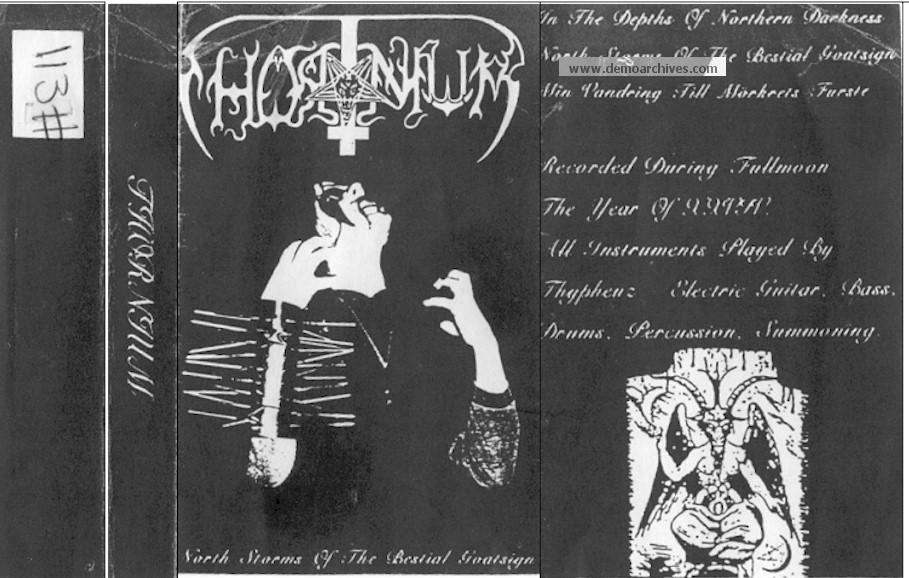 113#
THORNIUM
THORNIUM
North Storms Of The Bestial Goatsign
In The Depths Of Northern Darkness
North Storms Of The Bestial Goatsign
www.demoarchives.com
Min Vandring Till Mörkrets Furste
Recorded During Fullmoon
The Year Of
All Instruments Played By
Thypheuz Electric Guitar, Bass,
Drums, Percussion, Summoning.